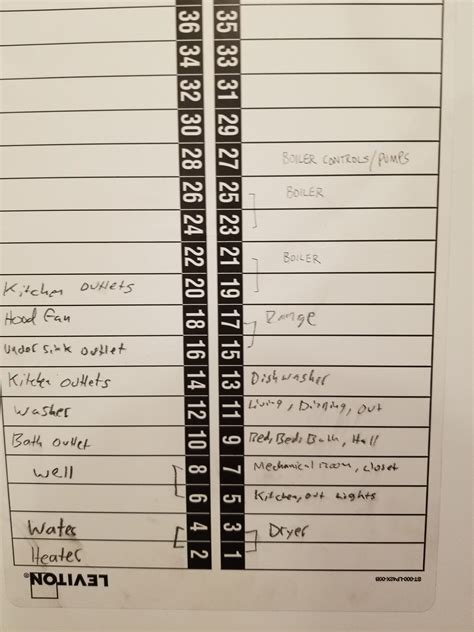 36 35
34 33
32 31
30 29
28 27 BOILER CONTROLS/PUMPS
26 25 BOILER
24 23
22 21 BOILER
Kitchen outlets 20 19
Hood Fan 18 17 Range
Under Sink outlet 16 15
Kitchen outlets 14 13 Dishwasher
Washer 12 11 Living, Dining, out
Bath outlet 10 9 Bed, Beds Bath, Hall
Well 8 7 Mechanical room, closet
6 5 Kitchen, out lights
Water 4 3 Dryer
Heater 2 1
LEVITON®